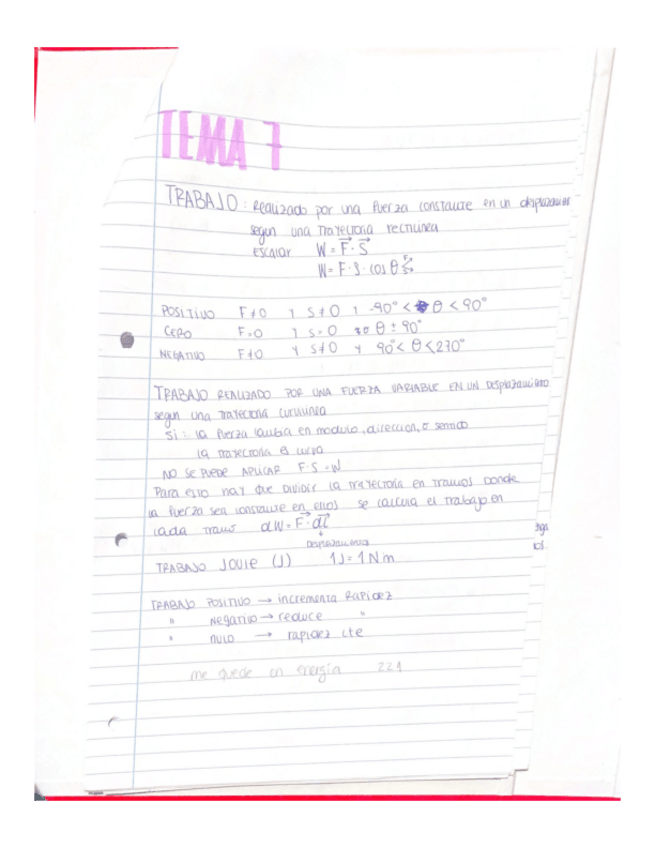 TEMA 7
TRABAJO: Realizado por una fuerza constante en un desplazamiento
segun una trayectoria rectilinea
escalar W = F⃗ · S⃗
W = F · S · cos θ
POSITIVO F≠0 y S≠0 y -90° < θ < 90°
CERO F=0 y S=0 θ = 90°
NEGATIVO F≠0 y S≠0 y 90° < θ < 270°
TRABAJO REALIZADO POR UNA FUERZA VARIABLE EN UN desplazamiento
segun una trayectoria curvilinea
Si: la fuerza cambia en modulo, direccion, o sentido
la trayectoria es curva
NO SE PUEDE APLICAR F·S=W
Para esto hay que dividir la trayectoria en tramos donde
la fuerza sea constante en ellos se calcula el trabajo en
cada tramo dW = F⃗ · dl⃗
↓
desplazamiento
TRABAJO JOULE (J) 1J = 1Nm
TRABAJO POSITIVO → incrementa Rapidez
" Negativo → reduce "
" nulo → rapidez cte
me quede en energía 221